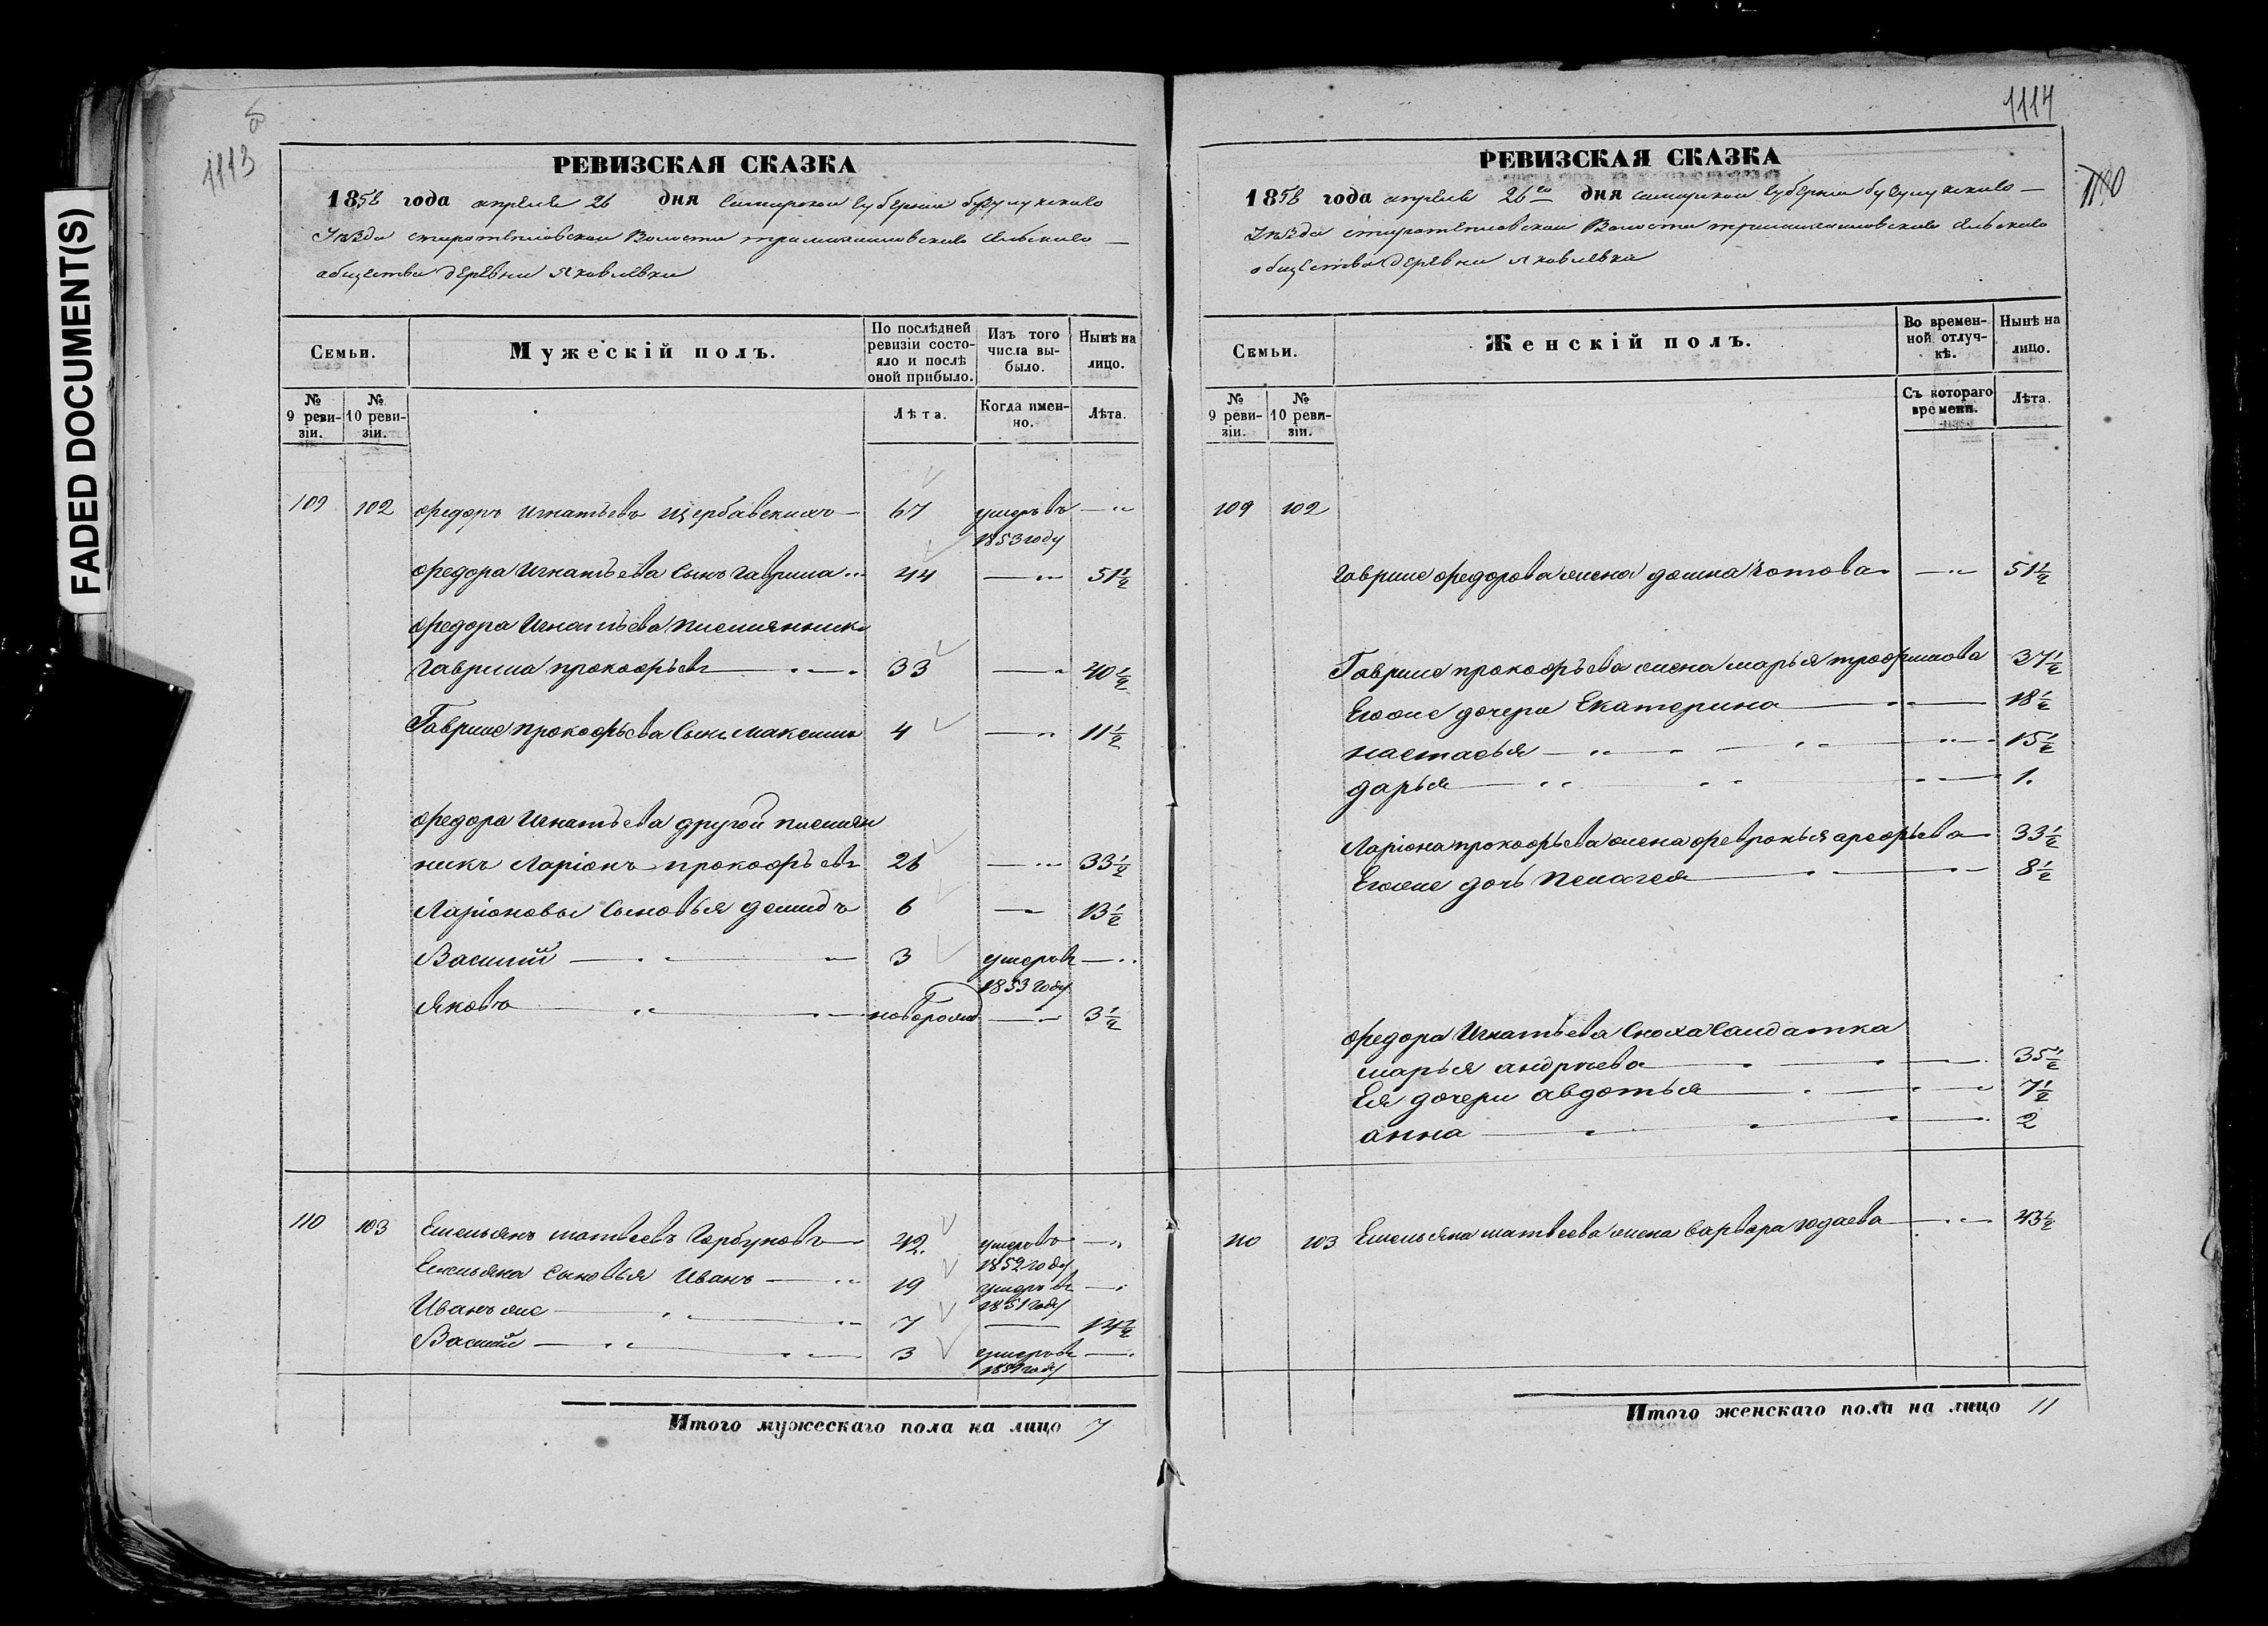 FADED DOCUMENT(S)
1113
РЕВИЗСКАЯ СКАЗКА
1858 года апреля 26 дня Самарской губернии бузулукскаго
Уѣзда старотепловской Волости тросмякиловскаго сельскаго
абщества деревни яковлевки
Семьи.
Мужескій полъ.
По послѣдней ревизіи состояло и послѣ оной прибыло.
Изъ того числа выбыло.
Нынѣ на лицо.
№ 9 ревизіи.
№ 10 ревизіи.
Лѣта.
Когда именно.
Лѣта.
109 102 Федоръ Игнатьевъ Щербавскихъ 67 умеръ въ 1853 году
Федора Игнатьева Сынъ Гаврила 44 51½
Федора Игнатьева племянникъ
Гаврила прокофьевъ 33 40½
Гаврилы прокофьева Сынъ Максимъ 4 11½
Федора Игнатьева другой племян
никъ Ларіонъ прокофьевъ 26 33½
Ларіоновы Сыновья демидъ 6 13½
Василий 3 умеръ въ 1853 году
Яковъ новорожд 3½
110 103 Емельянъ матвеевъ Горбуновъ 42. умеръ въ 1852 году
Емельяна Сыновья Иванъ 19 умеръ въ 1851 году
Иванъ же 7 14½
Василий 3 умеръ въ 1851 году
Итого мужескаго пола на лицо 7
1114
РЕВИЗСКАЯ СКАЗКА
1858 года апреля 26го дня самарской Губернии бузулукскаго
Уѣзда старотепловской Волости сельскаго
общества деревни яковлевки
Семьи.
Женскій полъ.
Во временной отлучкѣ.
Нынѣ на лицо.
№ 9 ревизіи.
№ 10 ревизіи.
Съ котораго времени.
Лѣта.
109 102
Гаврилы федорова жена домна Готова 51½
Гаврилы прокофьева жена марья трофимова 37½
Егоже дочери Екатерина 18½
настасья 15½
дарья 1.
Ларіона прокофьева жена февронья арефьева 33½
Егоже дочь Пелагея 8½
Федора Игнатьева Сноха Салдатка
марья андреева 35½
Ея дочери авдотья 7½
анна 2
110 103 Емельяна матвеева жена варвара юдаева 43½
Итого женскаго пола на лицо 11